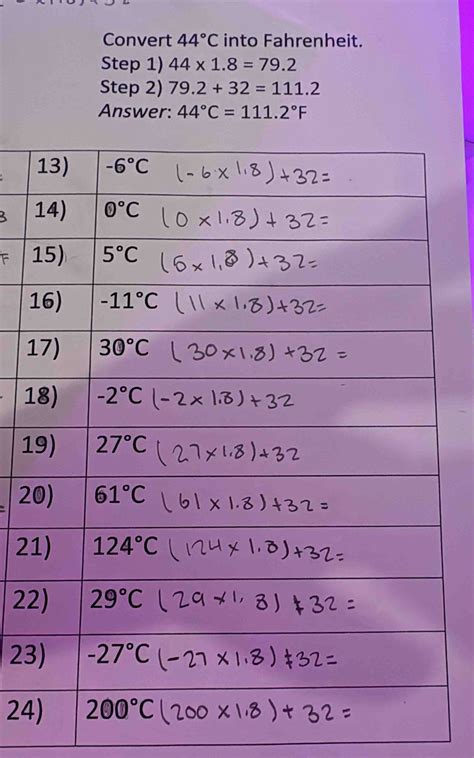 Convert 44°C into Fahrenheit.
Step 1) 44 x 1.8 = 79.2
Step 2) 79.2 + 32 = 111.2
Answer: 44°C = 111.2°F
13) -6°C (-6 x 1.8) +32=
14) 0°C (0 x 1.8) + 32=
15) 5°C (5 x 1.8) +32=
16) -11°C (11 x 1.8)+32=
17) 30°C (30x1.8) +32 =
18) -2°C (-2 x 1.8)+32
19) 27°C (27x1.8)+32
20) 61°C (61 x 1.8) +32=
21) 124°C (124x 1.8)+32=
22) 29°C (29 x1.8) +32 =
23) -27°C (-27 x1.8)+32=
24) 200°C (200 x1.8) + 32 =